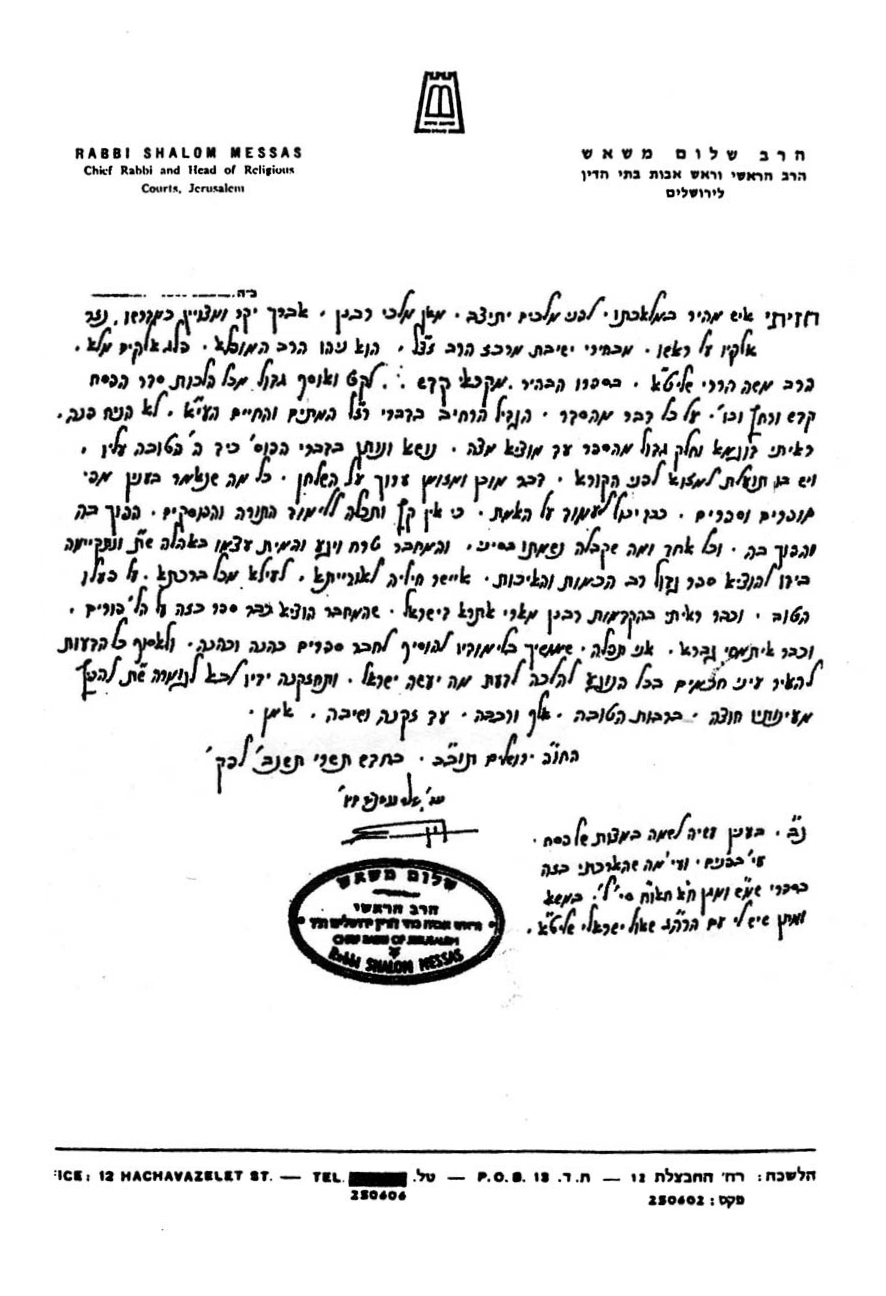 RABBI SHALOM MESSAS
Chief Rabbi and Head of Religious
Courts, Jerusalem
הרב שלום משאש
הרב הראשי וראש אבות בתי הדין
לירושלים
ב״ה
חזיתי איש מהיר במלאכתו. לפני מלכים יתיצב. מאן מלכי רבנן. אברך יקר ומצויין כמדרשו, נזר
אלקיו על ראשו. מבחירי ישיבת מרכז הרב זצ״ל. הוא ניהו הרב המופלא. פלג אלקים מלא.
הרב משה הררי שליט״א. בספרו הבהיר. מקראי קדש. לקט ואוסף גדול מכל הלכות סדר הפסח
קדש ורחץ וכו׳. על כל דבר מהסדר. הגדיל הרחיב בדברי רז״ל המתנים והחיים העי״א. לא הניח פנה.
ראיתי דוגמא וחלק גדול מהספר עד מוציא מצה. נושא ונותן בדברי הפוס׳ כיד ה׳ הטובה עליו.
ויש בו תועלת למצוא לפני הקורא. דבר מוכן ומזומן ערוך על השלחן. כל מה שנאמר בענין מפי
סופרים וספרים. כדי לעמוד על האמת. כי אין קץ ותכלה ללימוד התורה והפוסקים. הפוך בה
והפוך בה. וכל אחד ומה שקבלה נשמתו בסיני. והמחבר טרח ויגע והמית עצמו באהלה של תורה ונתקיימה
בידו להוציא ספר גדול רב הכמות והאיכות. איישר חיליה לאורייתא. לעילא מכל ברכתא. על פעלו
הטוב. וכבר ראיתי בהקדמות רבנן מארי אתרא דישראל. שהמחבר הוציא כבר ספר כזה על הל׳ פורים.
וכבר איתמחי גברא. אני תפלה. שימשיך בלימודיו להוסיף לחבר ספרים כהנה וכהנה. ולאסוף כל הדעות
להאיר עיני חכמים בכל הנוגע להלכה לדעת מה יעשה ישראל. ותחזקנה ידיו לבא לגומרה של תורה להפיץ
מעינותיו חוצה. ברבות הטובה. אלף ורבבה. עד זקנה ושיבה. אמן.
החו״פ ירושלים תובב״א. בחדש תשרי תשנב׳ לפ״ק׳
נ״ב. בענין עשיה לשמה במצות של פסח.
עי׳ בפנים. ועי׳ מה שהארכתי בזה
בספרי שמ״ש ומגן ח״א חאו״ח סי׳ ל׳. במשא
ומתן שיש לי עם הרה״ג שאול ישראלי שליט״א.
שלום משאש
הרב הראשי
CHIEF RABBI OF JERUSALEM
Rabbi SHALOM MESSAS
הלשכה: רח׳ החבצלת 12 — ת.ד. 13 P.O.B. — טל. TEL. — ICE: 12 HACHAVAZELET ST.
250606
פקס: 250602